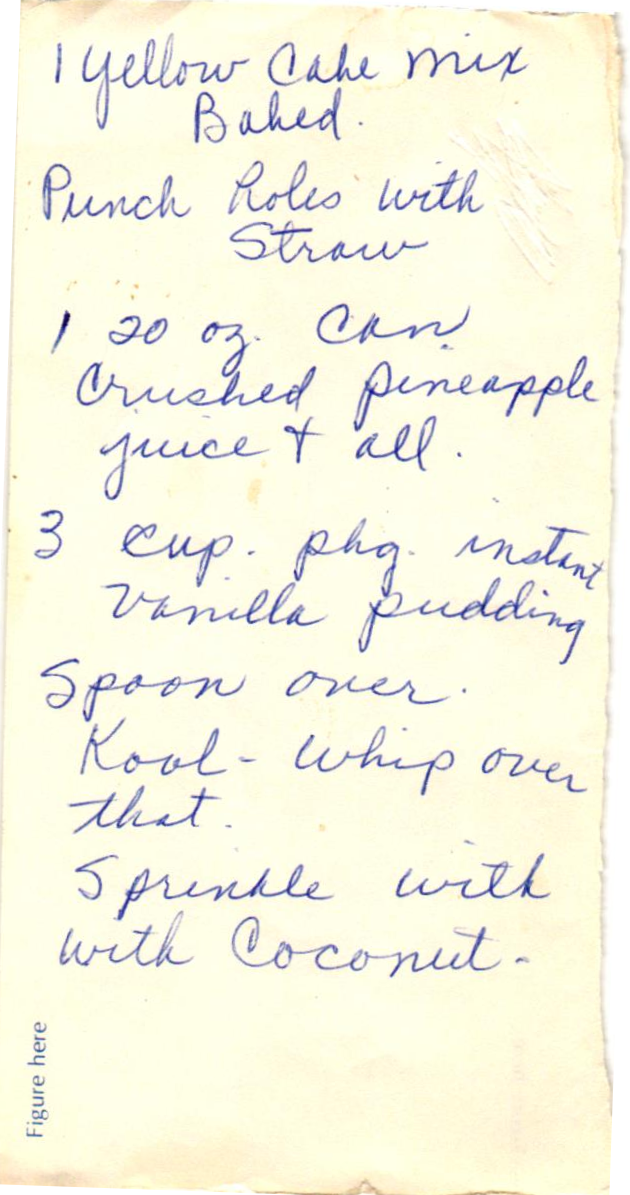 1 yellow Cake mix
Baked.
Punch holes with
Straw
1 20 oz. Can
Crushed pineapple
juice + all.
3 cup. pkg. instant
vanilla pudding
Spoon over.
Kool-whip over
that.
Sprinkle with
with Coconut-
Figure here